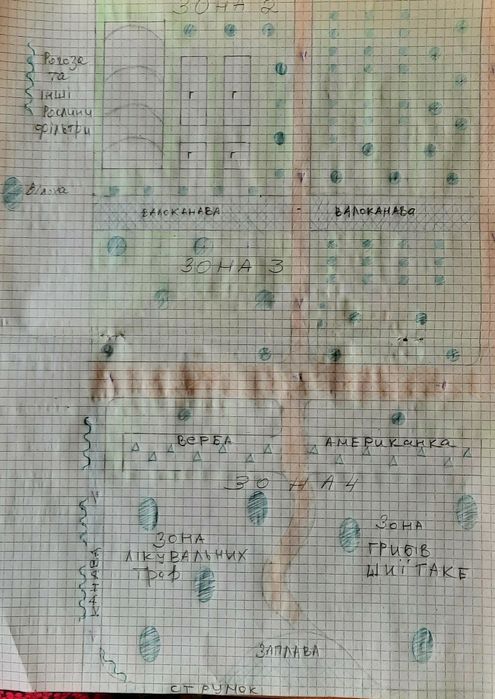 ЗОНА 2
Рогоза
та
інші
Рослини
фільтри
Г
Г
Г
Г
Вілоха
ВАЛОКАНАВА
ВАЛОКАНАВА
ЗОНА 3
ВЕРБА
АМЕРИКАНКА
ЗОНА 4
ЗОНА
ЛІКУВАЛЬНИХ
Трав
ЗОНА
ГРИБІВ
ШИЇТАКЕ
КАНАВА
ЗАПЛАВА
СТРУМОК